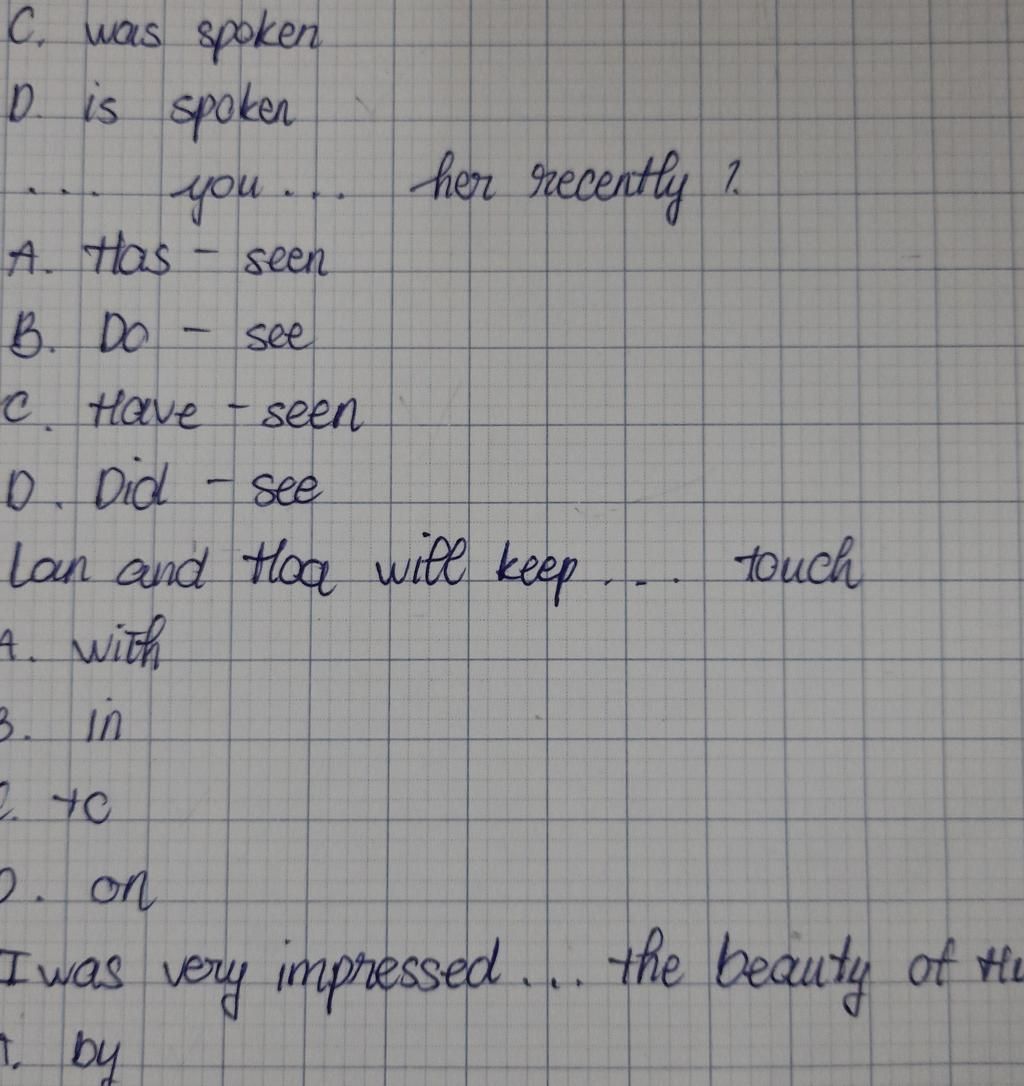 C. was spoken
D. is spoken
.... you... her recently?
A. Has - seen
B. Do - see
C. Have - seen
D. Did - see
Lan and Hoa will keep.... touch
A. with
B. in
C. to
D. on
I was very impressed... the beauty of
A. by